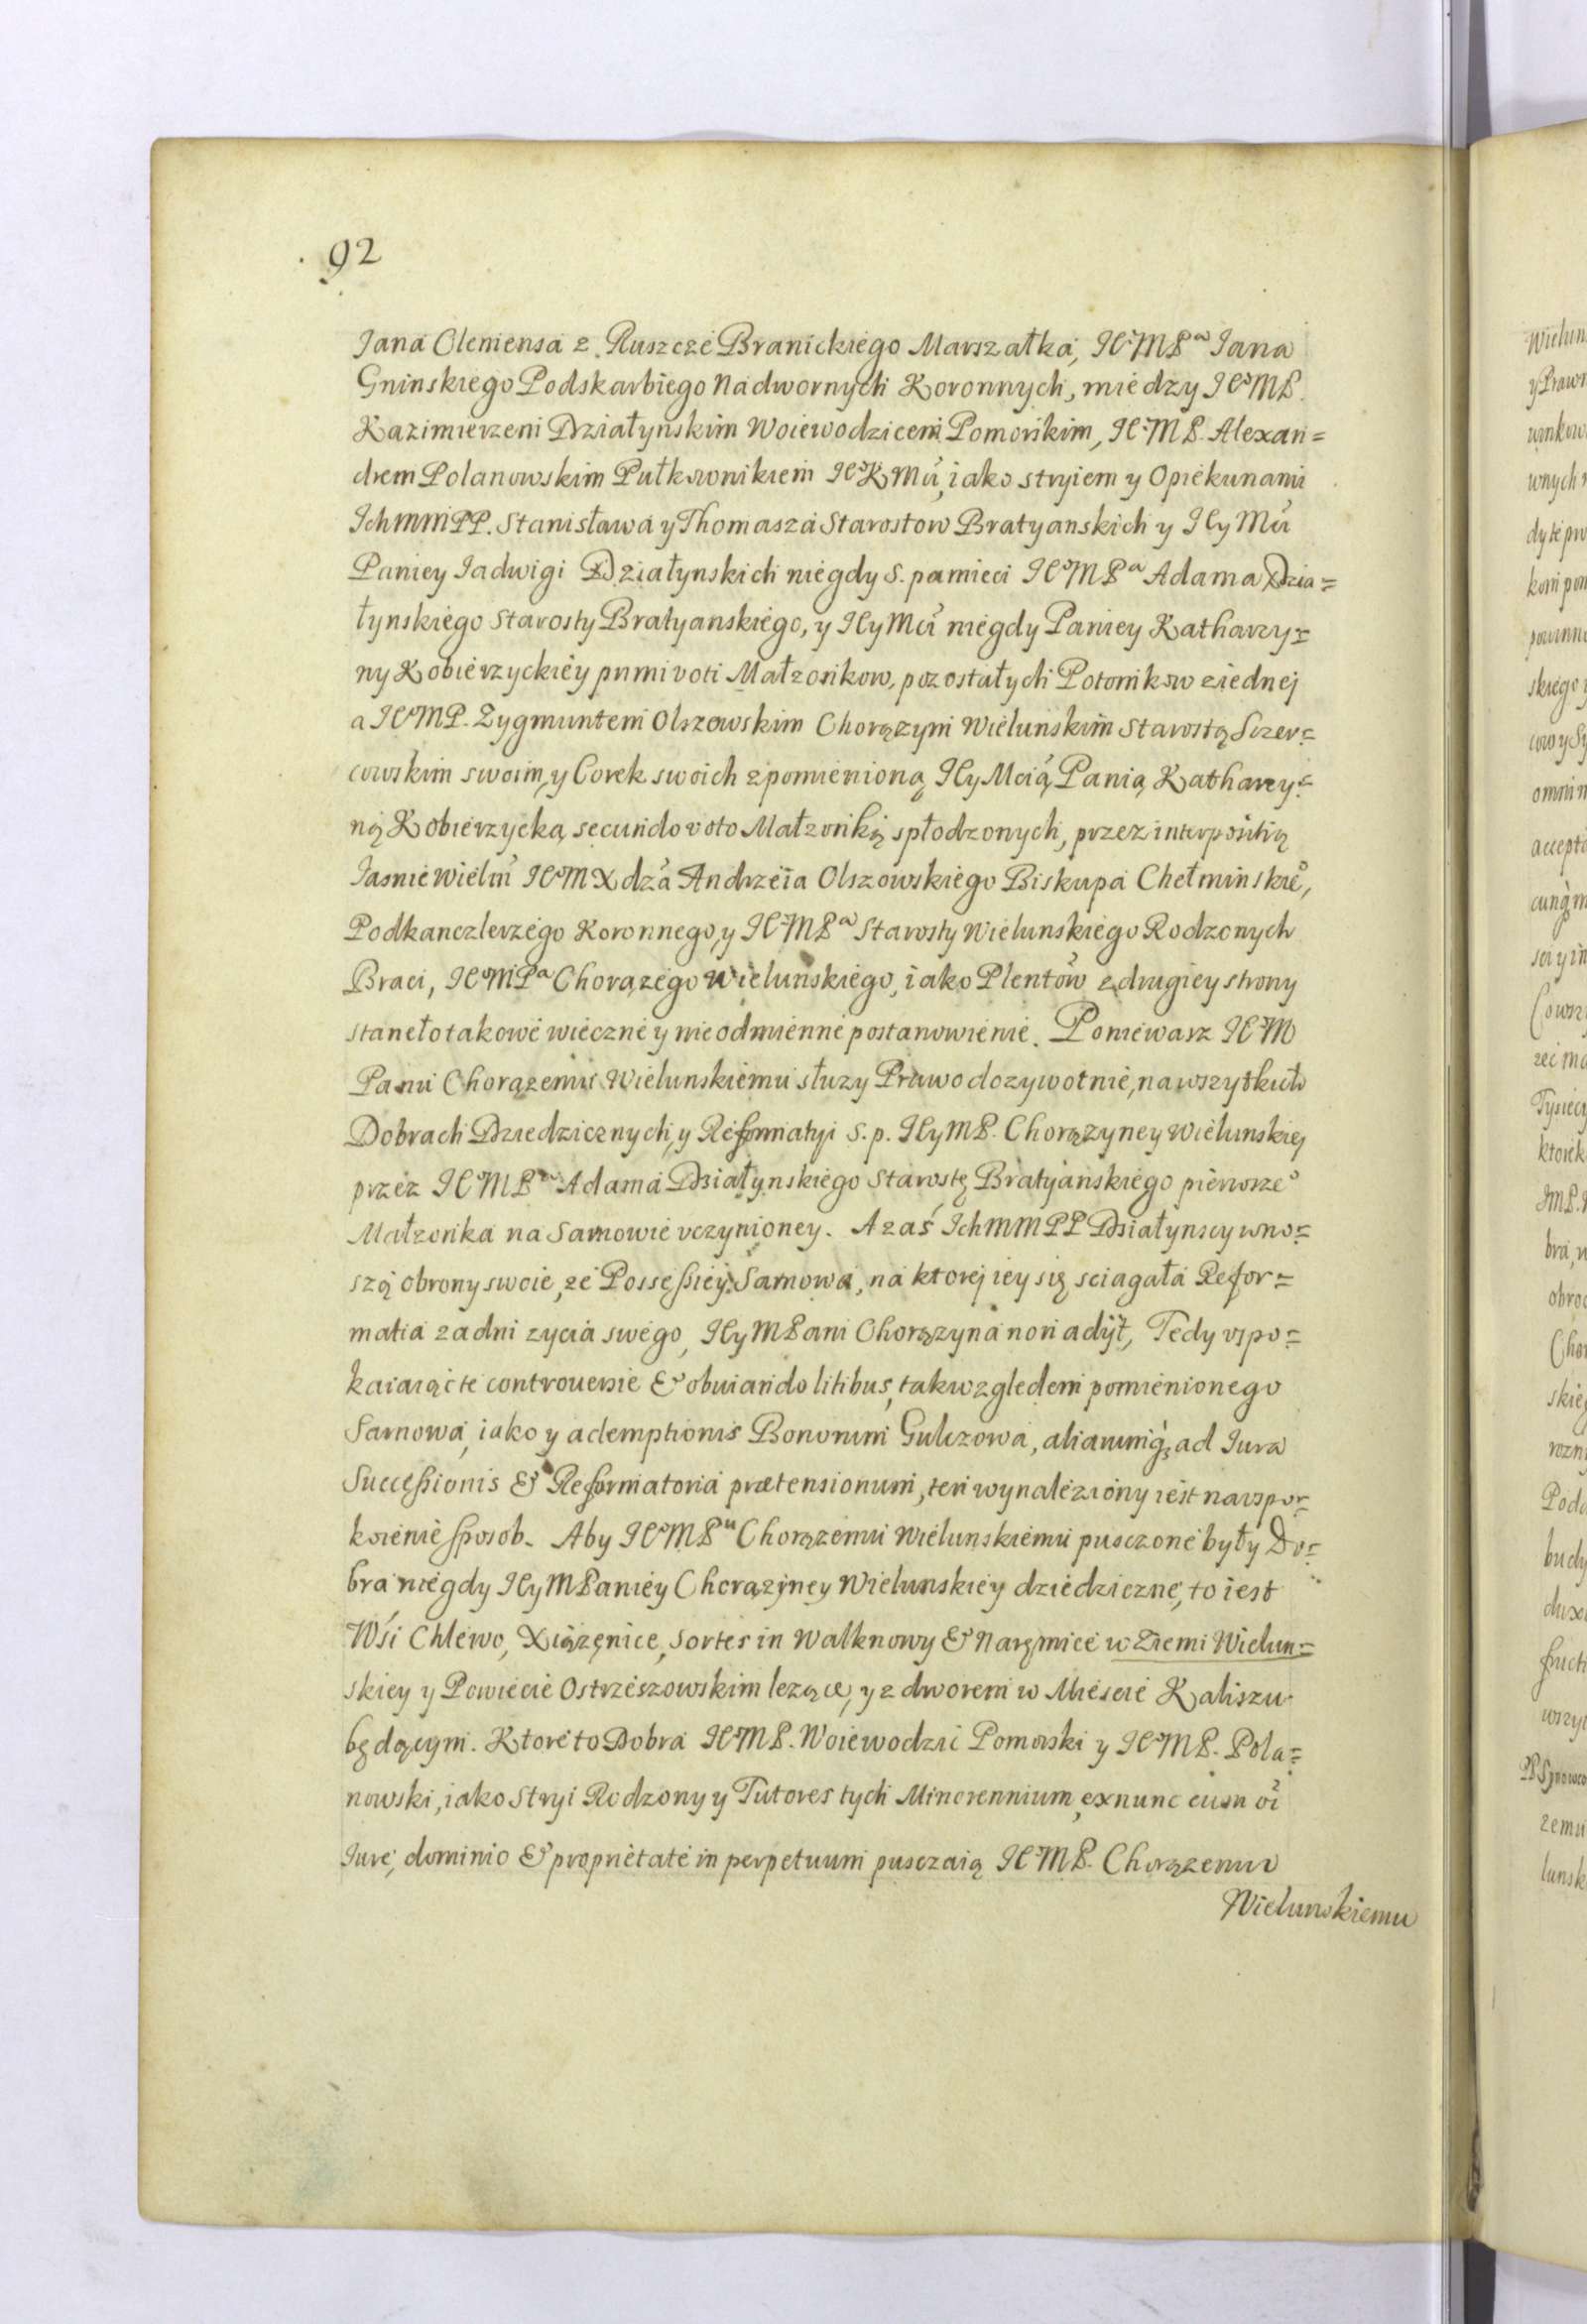 92
Jana Cleniensa z Ruszczé Branickiégo Marszałka, JE͠MPᵃ Jana
Gninskiego Podskarbiego Nadwornych Koronnych, miedzy JE͠MP.
Kazimierzem Działynskim Woiewodzicem Pomorskim, JE͠MP. Alexan=
drem Polanowskim Pułkownikiem JE͠KMci, iako stryiem y Opiekunami
IchmmPP. Stanisława y Thomasza Starostow Bratyanskich y JEy Mci
Paniey Jadwigi Działynskich niegdy S. pamieci JE͠MPᵃ Adama Dzia=
łynskiégo Starosty Bratyanskiégo, y JEy Mci niegdy Paniey Katharzy=
ny Kobierzyckiéy primi voti Małzonkow, pozostałych Potomkow ziednej
a JE͠MP. Zygmuntem Olszowskim Chorązym Wielunskim Starostą Szczer=
cowskim swoim, y Corek swoich z pomienioną JEy Mcią Panią Katharzy=
ną Kobierzycką secundo voto Małzonką spłodzonych, przez interpositią
Jasnie Wielm JE͠M Xdza Andrzeia Olszowskiégo Biskupa Chełminskieº,
Podkanczlerzégo Koronnego, y JE͠MPᵃ Starosty Wielunskiégo Rodzonych
Braci, JE͠MPᵃ Chorązégo Wielunskiégo, iako Plentów z drugiey strony
staneło takowé wieczné y nieodmienné postanowienié. Poniewasz JE͠M
Panu Chorązemu Wielunskiému słuzy Prawo dozywotnie, na wszytkich
Dobrach Dziedzicznych, y Reformatyi s. p. JEyMP. Chorązyney Wielunskiej
przez JE͠MPᵃ Adama Działynskiego Starostę Bratyanskiégo pierwszeº
Małzonka na Sarnowie vczynioney. A zaś IchmmPP Działynscy wno=
szą obrony swoie, ze Possessiéy Sarnowa, na ktorej iey się sciagała Refor=
matia za dni zycia swégo, JEyMPani Chorązyna non adijt, Tedy vspo=
kaiaiąc te controuersie & obuiando litibus, tak względem pomienionego
Sarnowa, iako y ademptionis Bonorum Gulczowa, aliarumq; ad Iura
Successionis & Reformatoria prætensionum, ten wynaléziony iest na vspo=
koienié sposob. Aby JE͠MPᵘ Chorązému Wielunskiému pusczoné były Do=
bra niégdy JEyMPaniéy Chorązyney Wielunskiéy dziédziczné, to iest
Wśi Chléwo, Xiązęnice, Sortes in Walknowy & Naręmicé w Ziemi Wielun=
skiey y Powiécié Ostrzészowskim lezącé, y z dworem w Miescie Kaliszu
będącym. Ktoré to Dobra JE͠MP. Woiewodzic Pomorski y JE͠MP. Pola=
nowski, iako Stryi Rodzony y Tutores tych Minorennium, exnunc cum oi
Iuré, dominio & proprietaté in perpetuum pusczaią JE͠MP. Chorązemu
Wielunskiemu